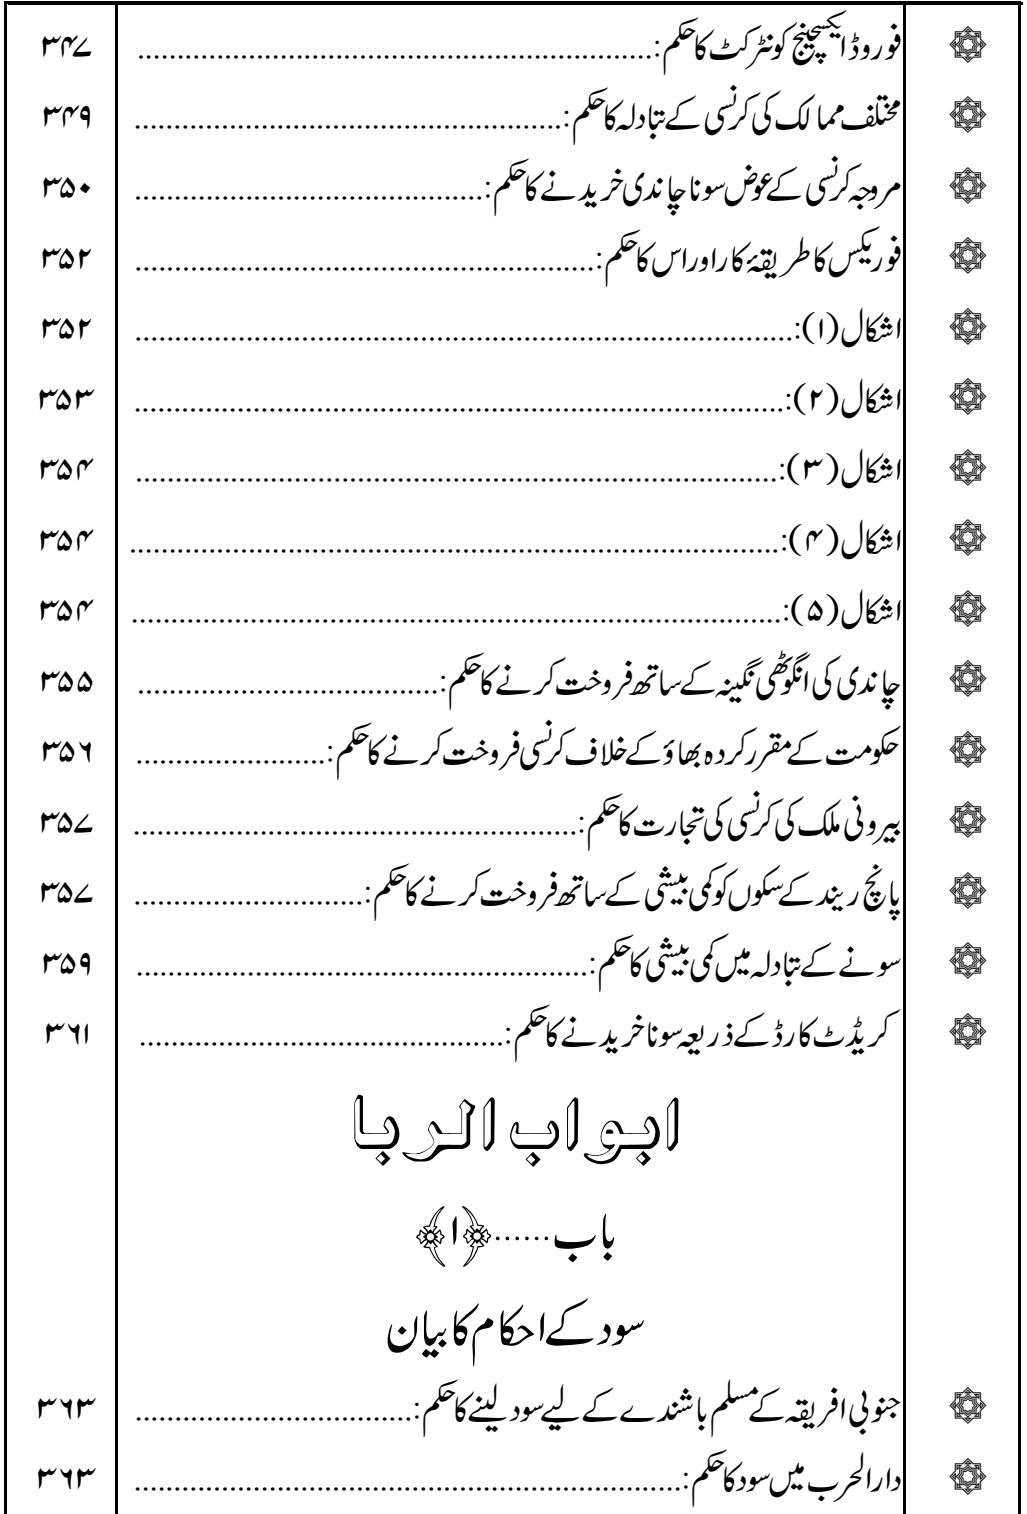 فوروڈ ایکسچینج کونٹرکٹ کا حکم:............ ۳۴۷
مختلف ممالک کی کرنسی کے تبادلہ کا حکم:............ ۳۴۹
مروجہ کرنسی کے عوض سونا چاندی خریدنے کا حکم:............ ۳۵۰
فوریکس کا طریقۂ کار اور اس کا حکم:............ ۳۵۲
اشکال (۱):............ ۳۵۲
اشکال (۲):............ ۳۵۳
اشکال (۳):............ ۳۵۴
اشکال (۴):............ ۳۵۴
اشکال (۵):............ ۳۵۴
چاندی کی انگوٹھی نگینہ کے ساتھ فروخت کرنے کا حکم:............ ۳۵۵
حکومت کے مقرر کردہ بھاؤ کے خلاف کرنسی فروخت کرنے کا حکم:............ ۳۵۶
بیرونی ملک کی کرنسی کی تجارت کا حکم:............ ۳۵۷
پانچ ریند کے سکوں کو کمی بیشی کے ساتھ فروخت کرنے کا حکم:............ ۳۵۷
سونے کے تبادلہ میں کمی بیشی کا حکم:............ ۳۵۹
کریڈٹ کارڈ کے ذریعہ سونا خریدنے کا حکم:............ ۳۶۱
ابواب الربا
باب......﴿۱﴾
سود کے احکام کا بیان
جنوبی افریقہ کے مسلم باشندے کے لیے سود لینے کا حکم:............ ۳۶۳
دارالحرب میں سود کا حکم:............ ۳۶۳